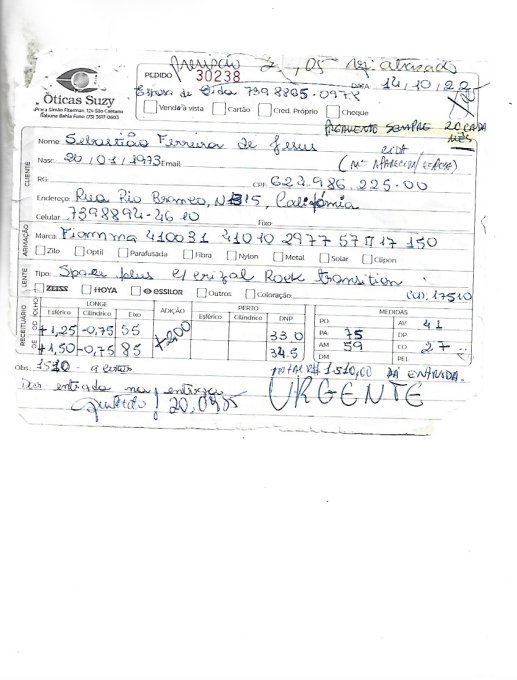 PEDIDO 30238
DATA 14/10/22
Óticas Suzy
Praça Simão Fiterman, 124 São Caetano
Itabuna Bahia Fone: (73) 3617-0603
Esposa de Cida 7398865-0978
Venda à vista Cartão Cred. Próprio Cheque
PAGAMENTO SEMPRE 20 CADA MÊS
CLIENTE
Nome Sebastião Ferreira de Jesus
Nasc. 20/01/1973 Email
RG CPF 624.986.225-00
Endereço: Rua Rio Branco, Califórnia
Celular 7398894-4610 Fixo
ARMAÇÃO
Marca Fiamma 410031 41010 2977 57 17 150
Zilo Optil Parafusada Fibra Nylon Metal Solar Clipon
LENTE
Tipo: Space plus c/ crizal Rock transition
ZEISS HOYA essilor Outros Coloração 17510
RECEITUÁRIO
OLHO LONGE ADIÇÃO PERTO DNP MEDIDAS
Esférico Cilíndrico Eixo Esférico Cilíndrico
OD +1,25 -0,75 55 +200 33.0
OE +1,50 -0,75 85 34.5
PO AV 41
PA 75 DP
AM 59 CO 27
DM PEL
Obs: 1510
TOTAL R$ 1510,00 ENTRADA
entrada na entrega
URGENTE